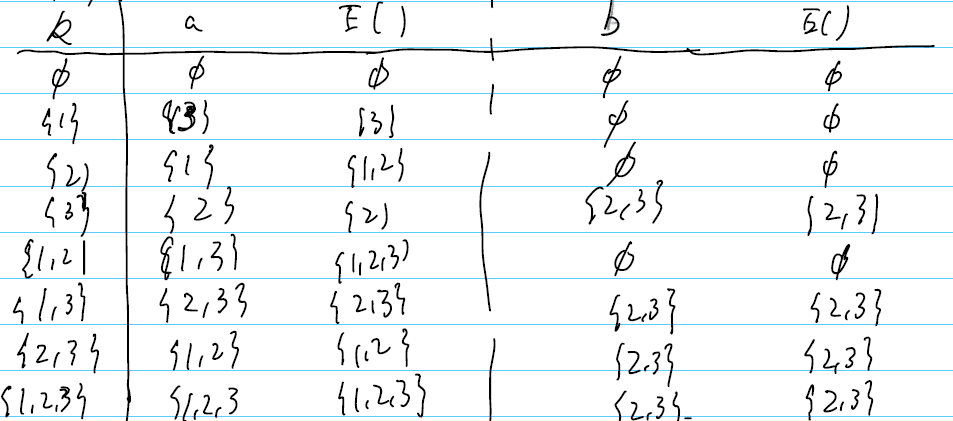 R a E() b E()
ϕ ϕ ϕ ϕ ϕ
{1} {3} {3} ϕ ϕ
{2) {1} {1,2} ϕ ϕ
{3} {2} {2) {2,3} {2,3}
{1,2] {1,3} {1,2,3) ϕ ϕ
{1,3} {2,3} {2,3} {2,3} {2,3}
{2,3} {1,2} {1,2} {2,3} {2,3}
{1,2,3} {1,2,3 {1,2,3} {2,3} {2,3}